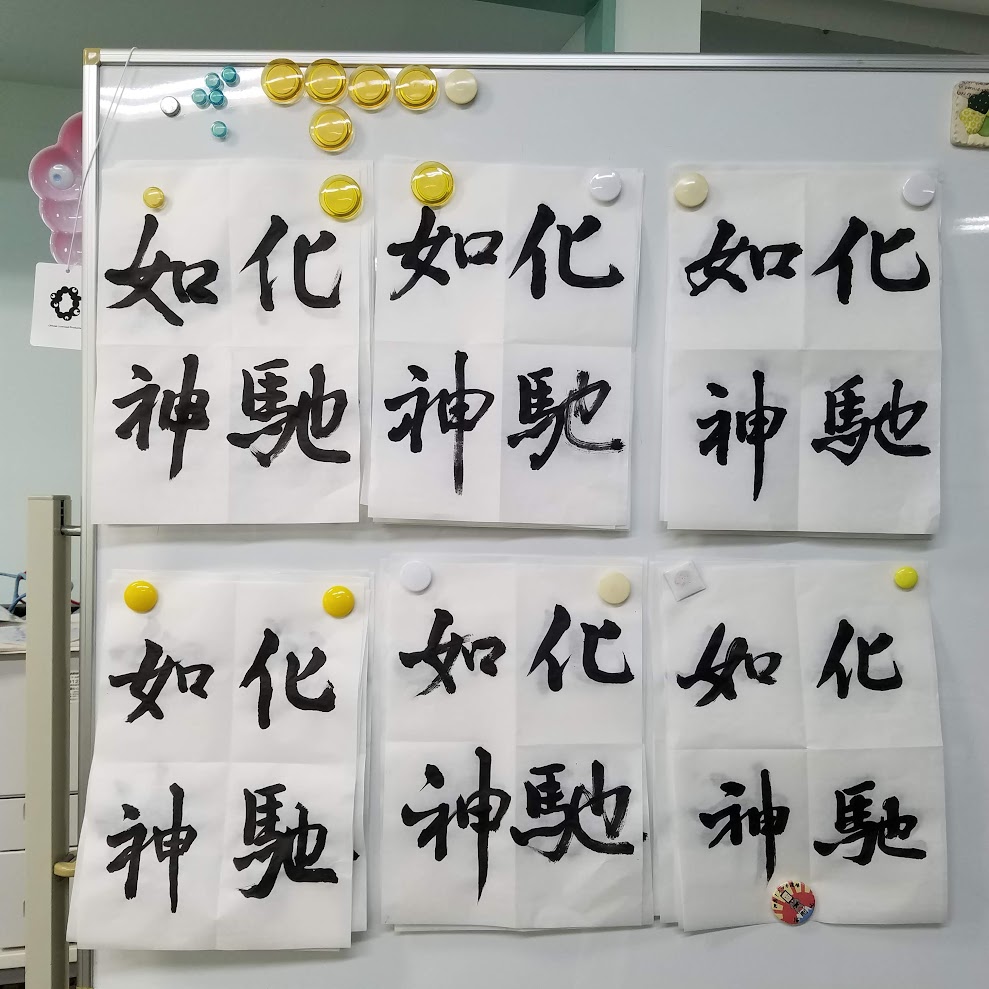 化馳
如神
化馳
如神
化馳
如神
化馳
如神
化馳
如神
化馳
如神